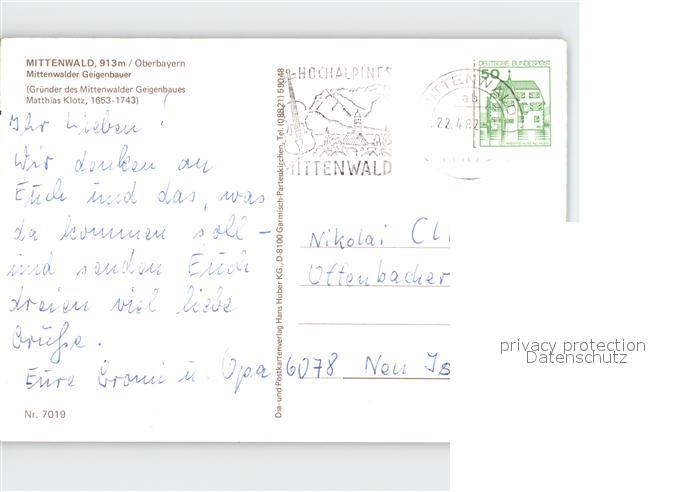 MITTENWALD, 913 m / Oberbayern
Mittenwalder Geigenbauer
(Gründer des Mittenwalder Geigenbaues
Matthias Klotz, 1653-1743)
Ihr Lieben!
Wir denken an
Euch und das, was
da kommen soll -
und senden Euch
dreien viel liebe
Grüße.
Eure Gromi u. Opa
Nr. 7019
Dia- und Postkartenverlag Hans Huber KG., D-8100 Garmisch-Partenkirchen, Tel. (08821) 59048
HOCHALPINES
MITTENWALD
MITTENWALD
ab
22.4.82
DEUTSCHE BUNDESPOST
50
Nikolai Cl
Offenbacher
6078 Neu Is
privacy protection
Datenschutz